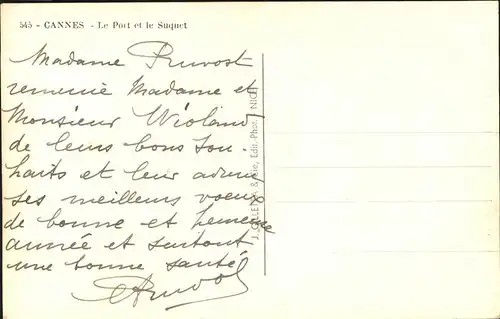 545 - CANNES - Le Port et le Suquet
Madame Pruvost
remercie Madame et
Monsieur Violand
de leurs bons sou-
haits et leur adresse
ses meilleurs voeux
de bonne et heureuse
année et surtout
une bonne santé
Pruvost
J. GILLETTA & Cie, Edit.-Phot., NICE